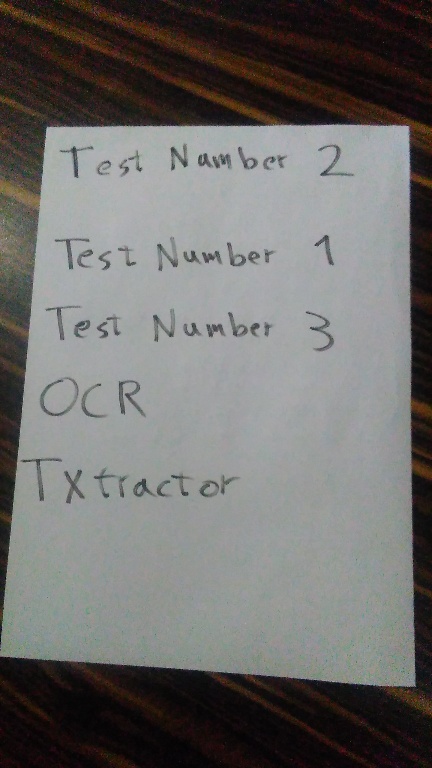 Test Number 2
Test Number 1
Test Number 3
OCR
TXtractor